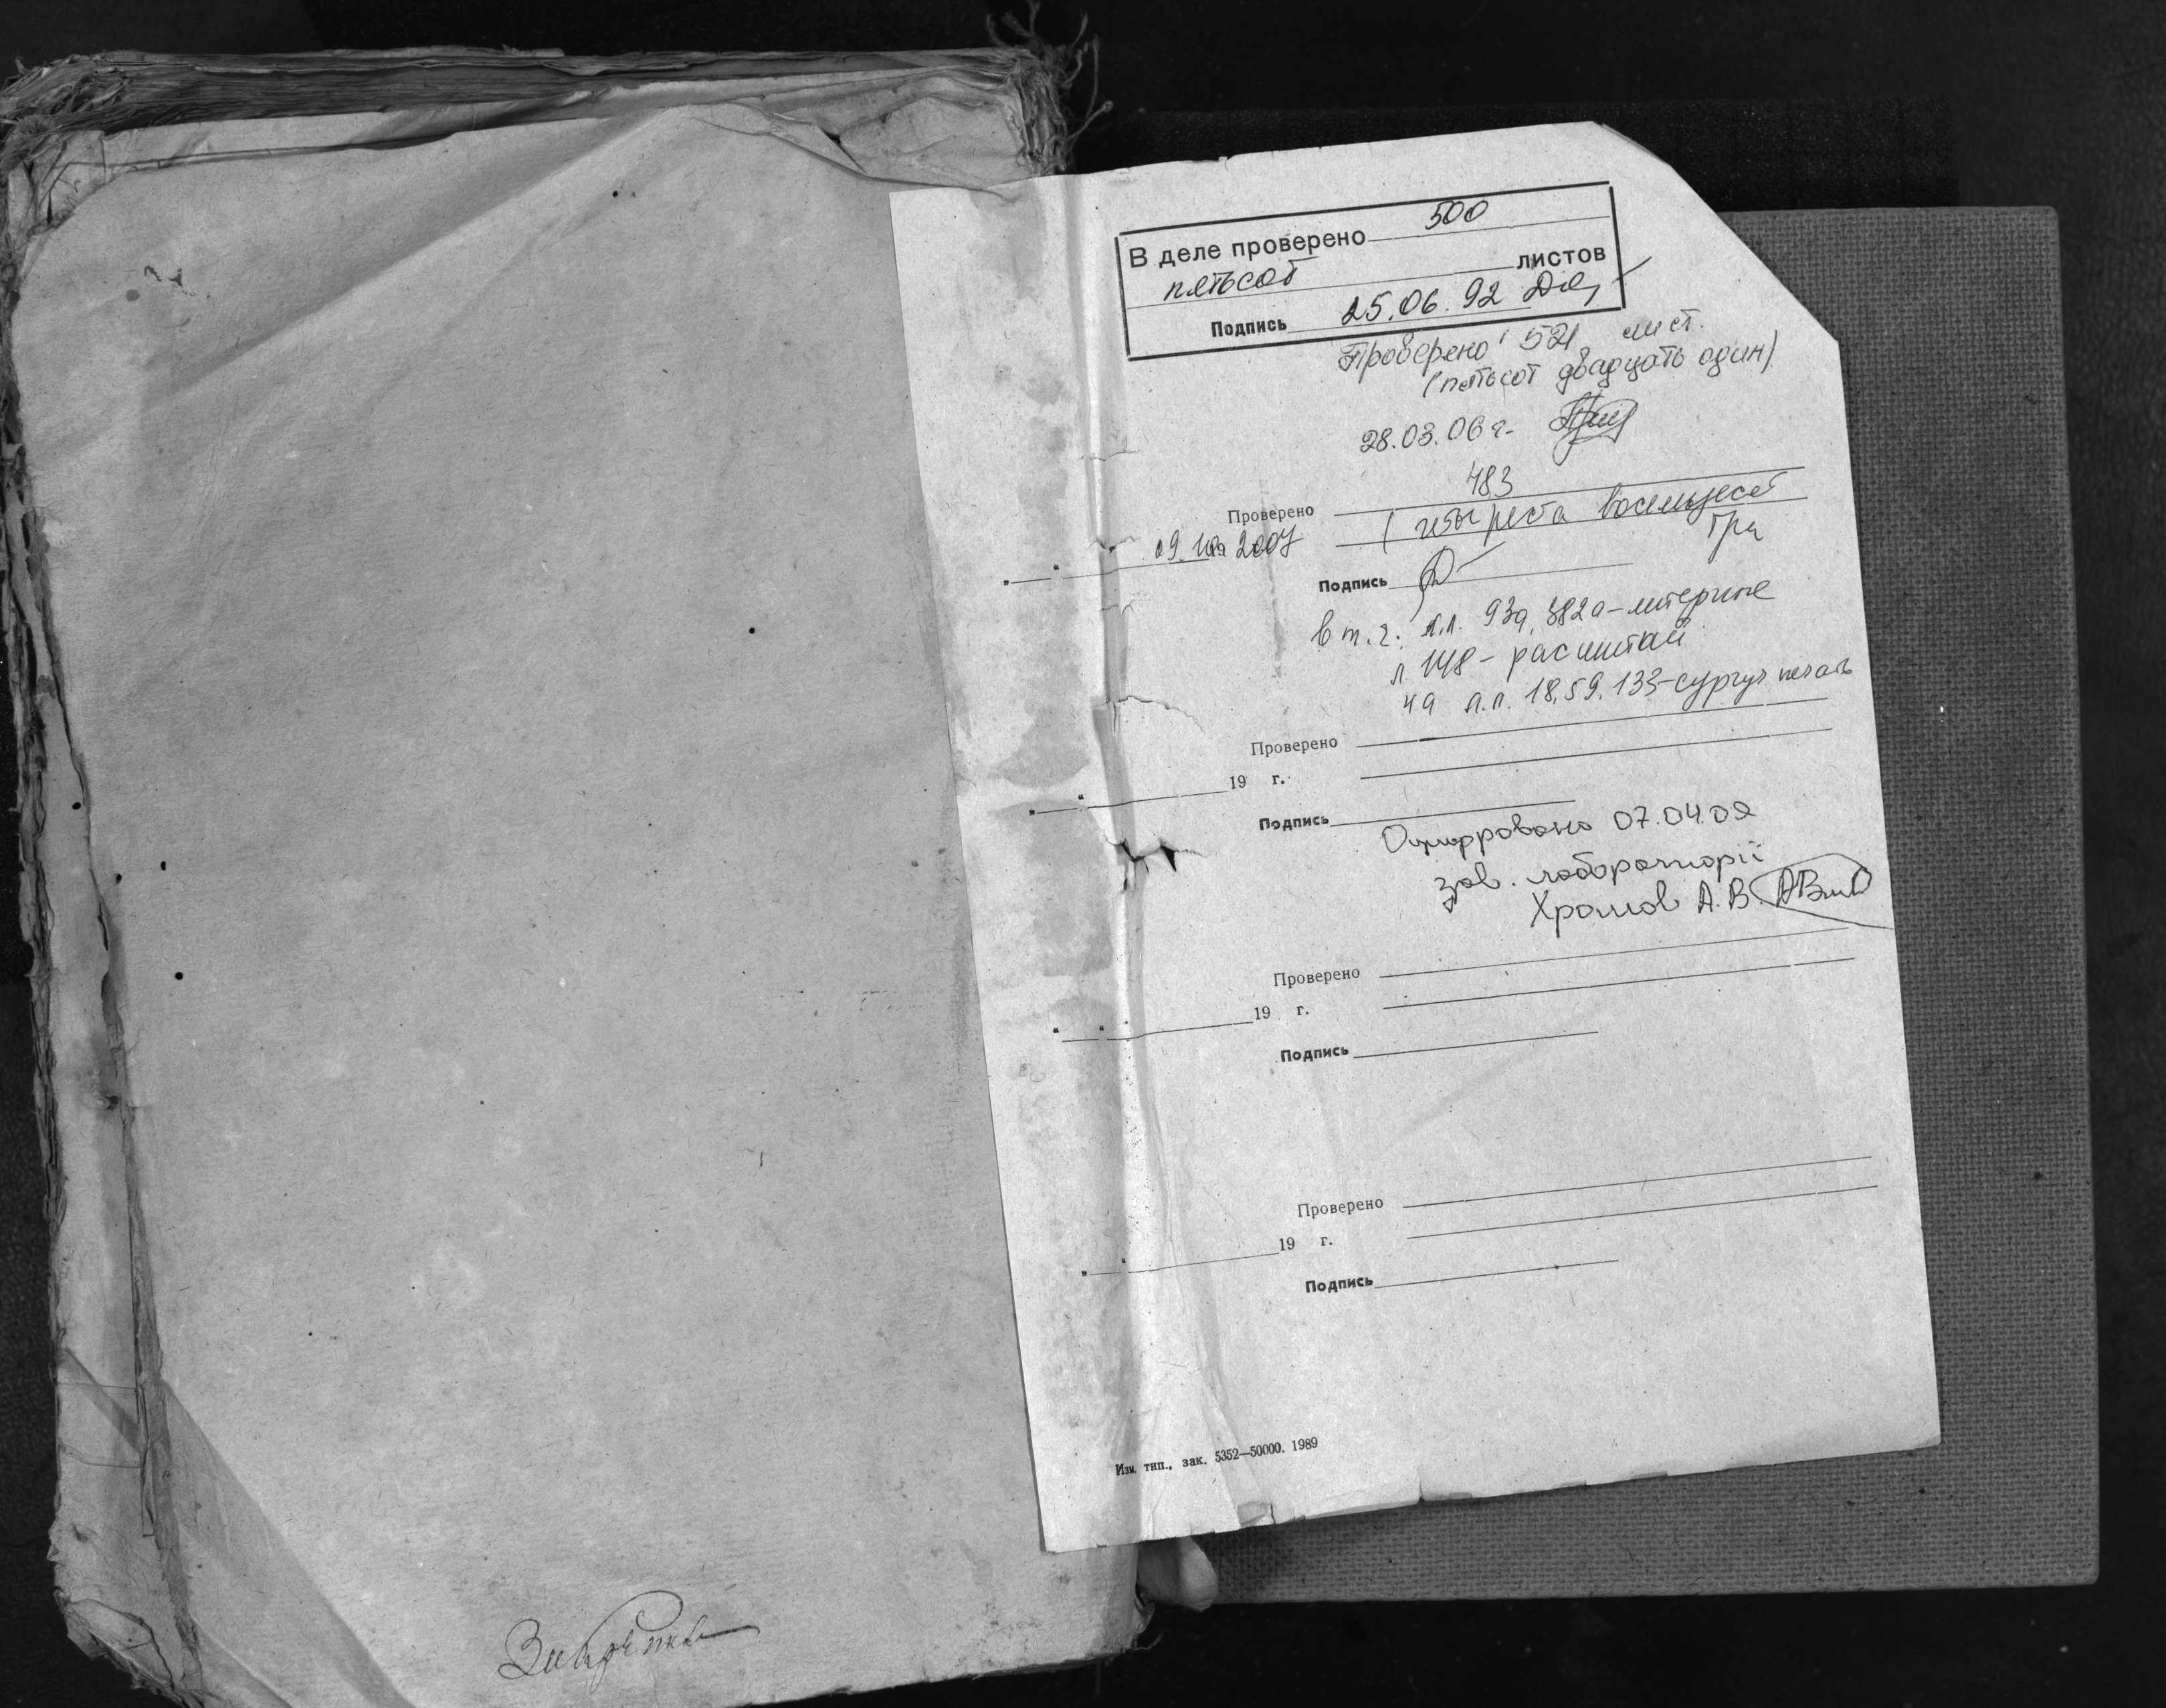 В деле проверено 500
пятьсот листов
Подпись 25.06.92
Проверено 521 лист.
(пятьсот двадцать один)
28.03.06 г.
483
Проверено
(четыреста восемьдесят
три
09. 2007
Подпись
в т.ч. л.л. 93а, 382а-литерные
л 148 - расшитый
на л.л. 18,59,133-сургуч печать
Проверено
19 г.
Подпись
Оцифровано 07.04.09
зав. лабораторії
Храмов А.В.
Проверено
19 г.
Подпись
Проверено
19 г.
Подпись
Изм. тип., зак. 5352—50000. 1989